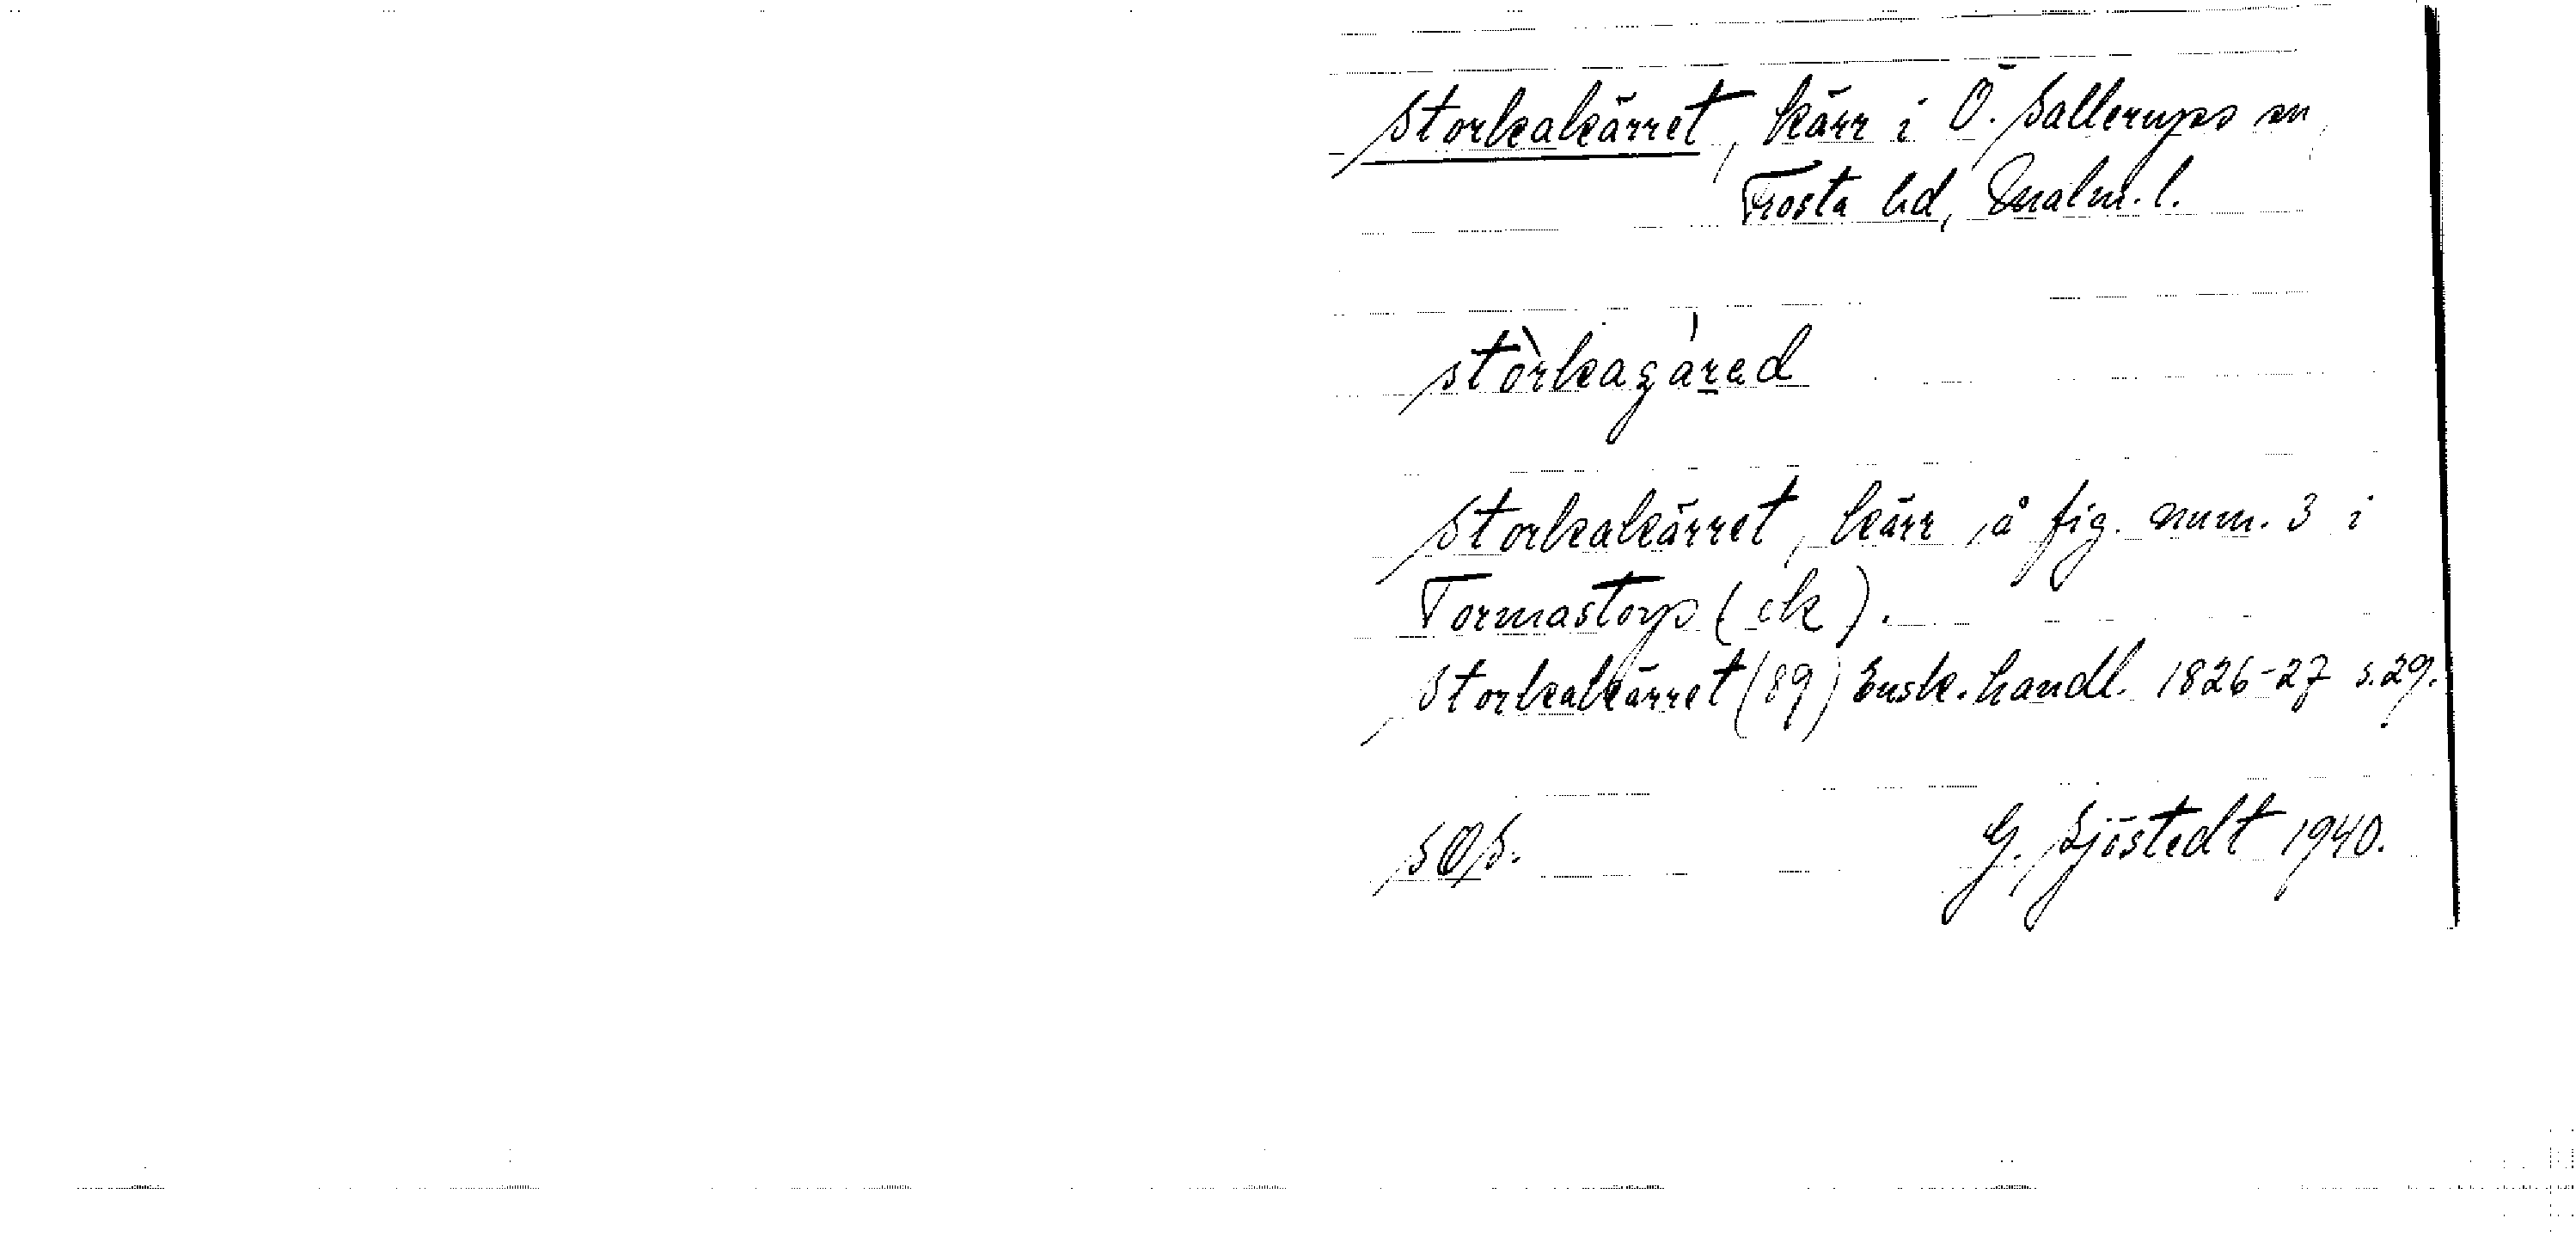 Storkakärret, kärr i Ö. Sallerups sn,
Frosta hd, Malm. l.
stòrkagárad
Storkakärret, kärr å fig. num. 3 i
Tormastorp (ek).
Storkakärret (89) Ensk. handl. 1826-27 s. 29.
SOS. G. Sjöstedt 1940.